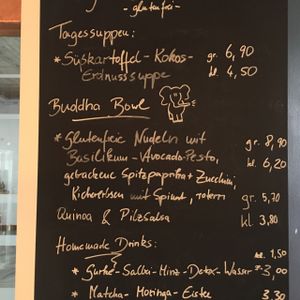 - glutenfrei -
Tagessuppen:
* Süßkartoffel-Kokos- gr. 6,90
Erdnusssuppe kl. 4,50
Buddha Bowl
* Glutenfreie Nudeln mit gr. 8,90
Basilikum-Avocado-Pesto, kl. 6,20
gebackene Spitzpaprika + Zucchini,
Kichererbsen mit Spinat, rotem gr. 5,70
Quinoa & Pilzsalsa kl. 3,80
Homemade Drinks: kl. 1,50
* Gurke-Salbei-Minz-Detox-Wasser 3,00
* Matcha-Moringa-Eistee 3,30